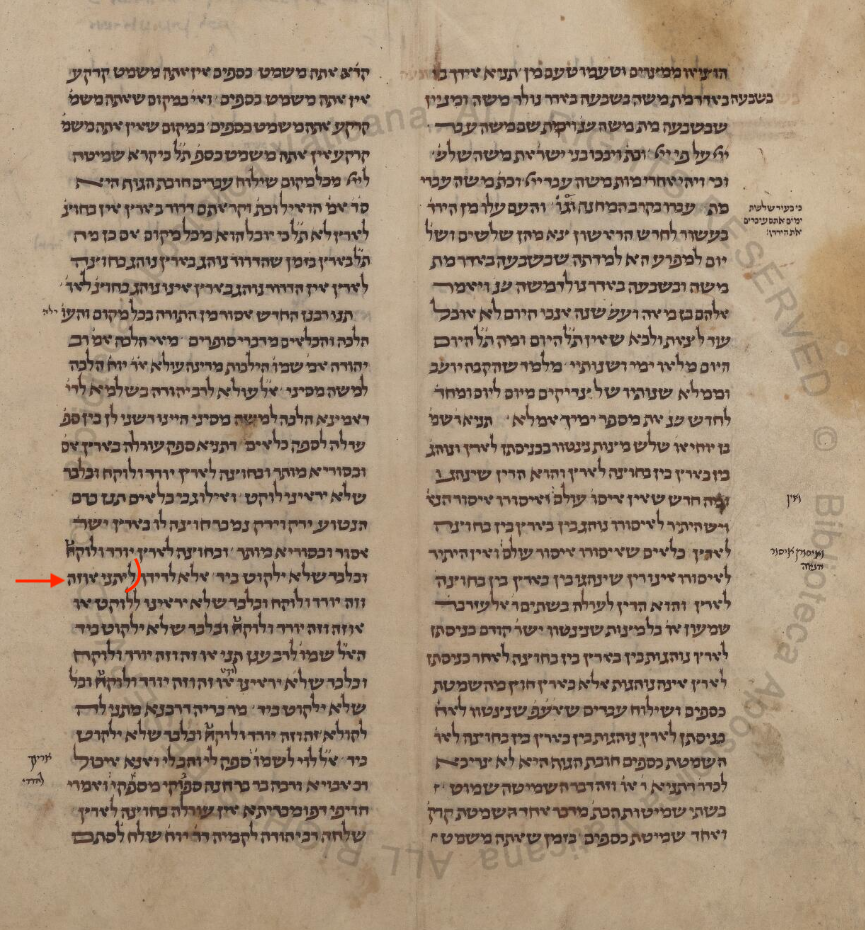 הוציאו ממצרים וטעמו טעם מן תניא אידך בז
בשבעה באדר מת משה בשבעה באדר נולד משה ומניין
שבשבעה מת משה שנ וימת שם משה עבד
ייי על פי ייי וכת ויבכו בני ישראל את משה שלש
וכת ויהי אחרי מות משה עבד ייי וכת משה עבדי
מת עברו בקרב המחנה וגו והעם עלו מן הירד
בעשור לחדש הראשון צא מהן שלשים ושל
יום למפרע הא למדתה שבשבעה באדר מת
משה ובשבעה באדר נולד משה שנ ויאמר
אלהם בן מאה ועש שנה אנכי היום לא אוכל
עוד לצאת ולבא שאין תל היום ומה תל היום
היום מלאו ימי ושנותיי מלמד שהקבה יושב
וממלא שנותיו של צדיקים מיום ליום ומחד
לחדש שנ את מספר ימיך אמלא תניא ר שמ
בן יוחי או שלש מצות נצטוו בכניסתן לארץ ונוהג
בין בארץ בין בחוצה לארץ והוא הדין שינהגו
ומה חדש שאין איסו עולם ואיסורו איסור הנא
ויש היתיר לאיסורו נוהג בין בארץ בין בחוצה
לארץ כלאים שאיסורו איסור עולם ואין היתיר
לאיסורו אינו דין שינהגו בארץ בין בחוצה
לארץ והוא הדין לערלה בשתים ר אלעזר בר
שמעון או כל מצות שנצטוו ישר קודם כניסתן
לארץ נוהגות בין בארץ בין בחוצה לאחר כניסתן
לארץ אינה נוהגות אלא בארץ חוץ מהשמטת
כספים ושילוח עבדים שאעפ שנצטוו לאח
כניסתן לארץ נוהגות בין בארץ בין בחוצה לאר
השמטת כספים חובת הגוף היא לא צריכא
לכדר דתניא ר או וזה דבר השמיטה שמוט
בשתי שמיטות הכת מדבר אחד השמטת קרק
ואחד שמיטת כספים בזמן שאתה משמט
כי בעוד שלשת
ימים אתם עוברים
את הירדן
ודין
קרקע אתה משמט כספים אין אתה משמט קרקע
אין אתה משמט כספים ואי במקום שאתה משמ
קרקע אתה משמט כספים במקום שאין אתה משמ
קרקע אין אתה משמט כספ תל כי קרא שמיטה
לייי מכל מקום שילוח עבדים חובת הגוף היא
סד אמ הואיל וכת וקראתם דרור בארץ אין בחוצ
לארץ לא תל כי יובל הוא מכל מקום אם כן מה
תל בארץ בזמן שהדרור נוהג בארץ נוהג בחוצה
לארץ אין הדרור נוהג בארץ אינו נוהג בחוצ לאר
תנו רבנן החדש אסור מן התורה בכל מקום והער
הלכה והכלאים מדברי סופרים מאי הלכה אמ רב
יהודה אמ שמו הילכות מדינה עולא אר יוח הלכה
למשה מסיני אל עולא לרב יהודה בשלמא לדי
דאמינא הלכה למשה מסיני היינו דשני לן בין ספ
ערלה לספק כלאים דתניא ספק עורלה בארץ אס
ובסוריא מותר ובחוצה לארץ יורד ולוקח ובלבד
שלא יראיני לוקט ואילו גבי כלאים תנן כרם
הנטוע ירק וירק נמכר חוצה לו בארץ ישר
אסור ובסוריא מותר ובחוצה לארץ יורד ולוקח
ובלבד שלא ילקוט ביד אלא לדידך ליתני או זה
וזה יורד ולוקח ובלבד שלא יראינו ללוקט או
או זה וזה יורד ולוקח ובלבד שלא ילקוט ביד
האל שמו לרב ענן תני או זה וזה יורד ולוקח
ובלבד שלא יראינו או זה וזה יורד ולוקח ובל
שלא ילקוט ביד מר בריה דרבנא מתני לה
לקולא זה וזה יורד ולוקח ובלבד שלא ילקוט
ביד אל לוי לשמו ספק לי ואנא איכול
רב אויא ורבה בר בר חנה ספקי מספקי ואמרי
חריפי דפומבדיתא אין עורלה בחוצה לארץ
שלחה רב יהודה לקמיה דר יוח שלח לסתם